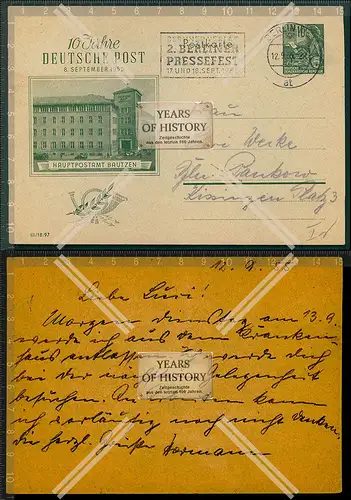 10 Jahre
DEUTSCHE POST
8. SEPTEMBER 1955
Besucht die
2. BERLINER
PRESSEFEST
17. UND 18. SEPT.
BERLIN
12.9.
HAUPTPOSTAMT BAUTZEN
YEARS
OF HISTORY
Zeitgeschichte
aus den letzten 100 Jahren.
Frau
Werke
Bln Pankow
Kissingen Platz 3
III/18-97
12. 9. 55
Liebe Luzi!
Morgen Dienstag am 13.9.
werde ich aus dem Kranken-
haus entlassen werde dich
bei der Gelegenheit
besuchen. kann
ich vorläufig noch nicht denken,
die herzl. Grüße Hermann
YEARS
OF HISTORY
Zeitgeschichte
aus den letzten 100 Jahren.